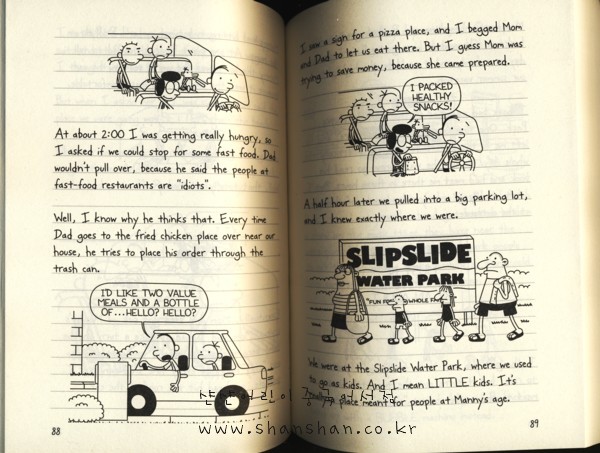 At about 2:00 I was getting really hungry, so
I asked if we could stop for some fast food. Dad
wouldn't pull over, because he said the people at
fast-food restaurants are "idiots".
Well, I know why he thinks that. Every time
Dad goes to the fried chicken place over near our
house, he tries to place his order through the
trash can.
I'D LIKE TWO VALUE
MEALS AND A BOTTLE
OF...HELLO? HELLO?
88
I saw a sign for a pizza place, and I begged Mom
and Dad to let us eat there. But I guess Mom was
trying to save money, because she came prepared.
I PACKED
HEALTHY
SNACKS!
A half hour later we pulled into a big parking lot,
and I knew exactly where we were.
SLIPSLIDE
WATER PARK
"FUN FOR WHOLE
We were at the Slipslide Water Park, where we used
to go as kids. And I mean LITTLE kids. It's
really a place meant for people at Manny's age.
89
www.shanshan.co.kr